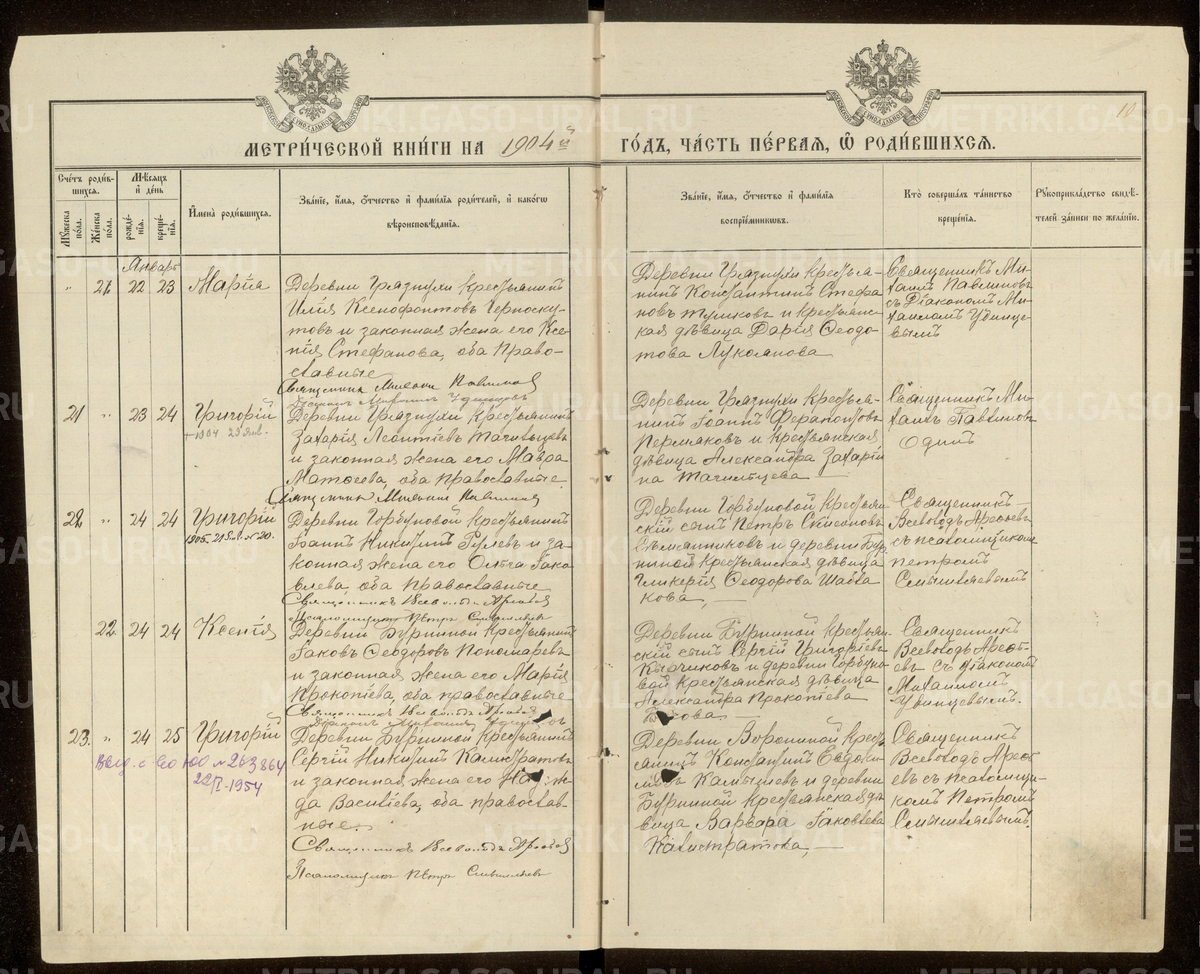 10
МЕТРИ́ЧЕСКОЙ КНИ́ГИ НА 1904й ГО́ДЪ, ЧА́СТЬ ПЕ́РВАѦ, Ѽ РОДИ́ВШИХСѦ.
Сче́тъ роди́вшихсѧ.
Мꙋ́жеска по́ла.
Же́нска по́ла.
Мѣ́сѧцъ и҆ де́нь
рожде́нїѧ.
креще́нїѧ.
И҆мена̀ роди́вшихсѧ.
Зва́нїе, и҆́мѧ, ѻ҆́тчество и҆ фами́лїѧ роди́телей, и҆ како́гѡ
вѣроисповѣ́данїѧ.
Зва́нїе, и҆́мѧ, ѻ҆́тчество и҆ фами́лїѧ
воспрїе́мникѡвъ.
Кто̀ соверша́лъ та́инство
креще́нїѧ.
Рꙋкоприкла́дство свидѣ́-
телей за́писи по жела́нїю.
Январь
" 21. 22 23 Марія
Деревни Грязнухи крестьянинъ
Илія Ксенофонтовъ Черноску-
товъ и законная жена его Ксе-
нія Стефанова, оба Право-
славные
Священникъ Михаилъ Павлиновъ
Деревни Грязнухи крестья-
нинъ Константинъ Стефа
новъ и крестьянс-
кая дѣвица Дарія Ѳеодо-
това Луколнова
Священникъ Ми-
хаилъ Павлиновъ
съ Діакономъ Ми-
хаиломъ Увинце-
вымъ
21 " 23 24 Григорій
1904 29 Янв.
Деревни Грязнухи крестьянинъ
Захарія Леонтіевъ Тагильцевъ
и законная жена его Мавра
Матѳеова, оба православные.
Священникъ Михаилъ Павлиновъ
Деревни Грязнухи крестья-
нинъ Іоаннъ Ферапонтовъ
Пермяковъ и крестьянская
дѣвица Александра Захарі
на Тагильцева
Священникъ Ми-
хаилъ Павлиновъ
Одинъ
22. " 24 24 Григорій
1905. 21 Янв. № 20.
Деревни Горбуновой крестьянинъ
Іоаннъ Никитинъ Рулевъ и за-
конная жена его Ольга Іако
влева, оба православные
Священникъ Всеволодъ Арефьевъ
Псаломщикъ Петръ Смышляевъ
Деревни Горбуновой крестьян
скій сынъ Петръ
и деревни Бур
ниной крестьянская дѣвица
Гликерія Ѳеодорова Шаба
кова, —
Священникъ
Всеволодъ Арефьевъ
съ псаломщикомъ
Петромъ
Смышляевымъ
22. 24 24 Ксенія
Деревни Бурниной крестьянинъ
Іаковъ Ѳеодоровъ Пономаревъ
и законная жена его Марія
Прокопіева, оба православные
Священникъ Всеволодъ Арефьевъ
Деревни Бурниной крестьян-
скій сынъ Сергій Григоріевъ
и деревни Горбуно
вой крестьянская дѣвица
Александра Прокопіева
Священникъ
Всеволодъ Арефь-
евъ съ Діакономъ
Михаиломъ
Увинцевымъ.
23. " 24 25 Григорій
Выд. с-во ЮО № 263864
22/I-1954
Деревни Бурниной крестьянинъ
Сергій Никитинъ Калистратовъ
и законная жена его
да Васильева, оба православ-
ные.
Священникъ Всеволодъ Арефьевъ
Псаломщикъ Петръ Смышляевъ
Деревни Ворониной кресть
янинъ Константинъ Евдоки
мовъ Камышевъ и деревни
Бурниной крестьянская дѣ
вица Варвара Іаковлева
Калистратова, —
Священникъ
Всеволодъ Арефь
евъ съ Псаломщи-
комъ Петромъ
Смышляевымъ.
METRIKI.GASO-URAL.RU